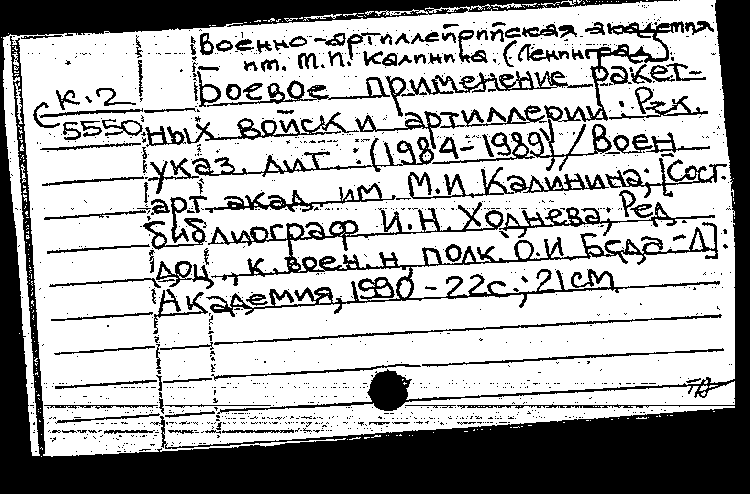 Военно-артиллерийская академия
им. М.И. Калинина. (Ленинград).
К.2
5550
Боевое применение ракет-
ных войск и артиллерии: Рек.
указ. лит.: (1984-1989) / Воен
арт. акад. им. М.И. Калинина; [Сост.
библиограф И.Н. Ходнева; Ред.
доц., к. воен. н, полк. О.И Беда.-Л]:
Академия, 1990 - 22с.; 21см